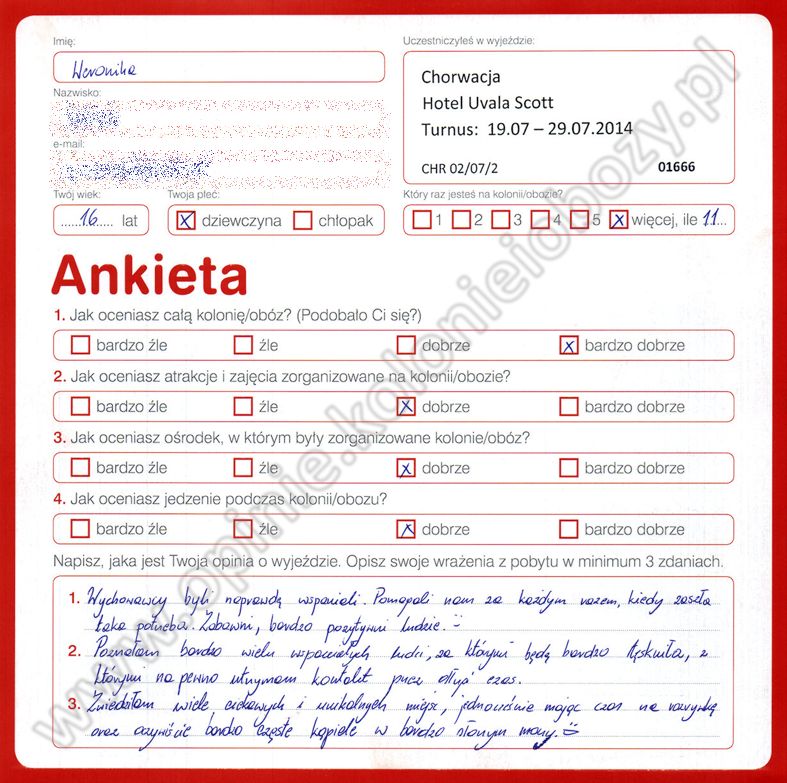 Imię:
Weronika
Nazwisko:
e-mail:
Twój wiek:
16 lat
Twoja płeć:
dziewczyna chłopak
Uczestniczyłeś w wyjeździe:
Chorwacja
Hotel Uvala Scott
Turnus: 19.07 – 29.07.2014
CHR 02/07/2 01666
Który raz jesteś na kolonii/obozie?
1 2 3 4 5 więcej, ile 11
Ankieta
1. Jak oceniasz całą kolonię/obóz? (Podobało Ci się?)
bardzo źle źle dobrze bardzo dobrze
2. Jak oceniasz atrakcje i zajęcia zorganizowane na kolonii/obozie?
bardzo źle źle dobrze bardzo dobrze
3. Jak oceniasz ośrodek, w którym były zorganizowane kolonie/obóz?
bardzo źle źle dobrze bardzo dobrze
4. Jak oceniasz jedzenie podczas kolonii/obozu?
bardzo źle źle dobrze bardzo dobrze
Napisz, jaka jest Twoja opinia o wyjeździe. Opisz swoje wrażenia z pobytu w minimum 3 zdaniach.
1. Wychowawcy byli naprawdę wspaniali. Pomagali nam za każdym razem, kiedy zaszła
taka potrzeba. Zabawni, bardzo pozytywni ludzie. :)
2. Poznałam bardzo wielu wspaniałych ludzi, za którymi będę bardzo tęskniła, z
którymi na pewno utrzymam kontakt przez długi czas.
3. Zwiedziłam wiele ciekawych i unikalnych miejsc, jednocześnie mając czas na rozrywkę
oraz oczywiście bardzo częste kąpiele w bardzo słonym morzu. :)
www.opinie.kolonieiobozy.pl